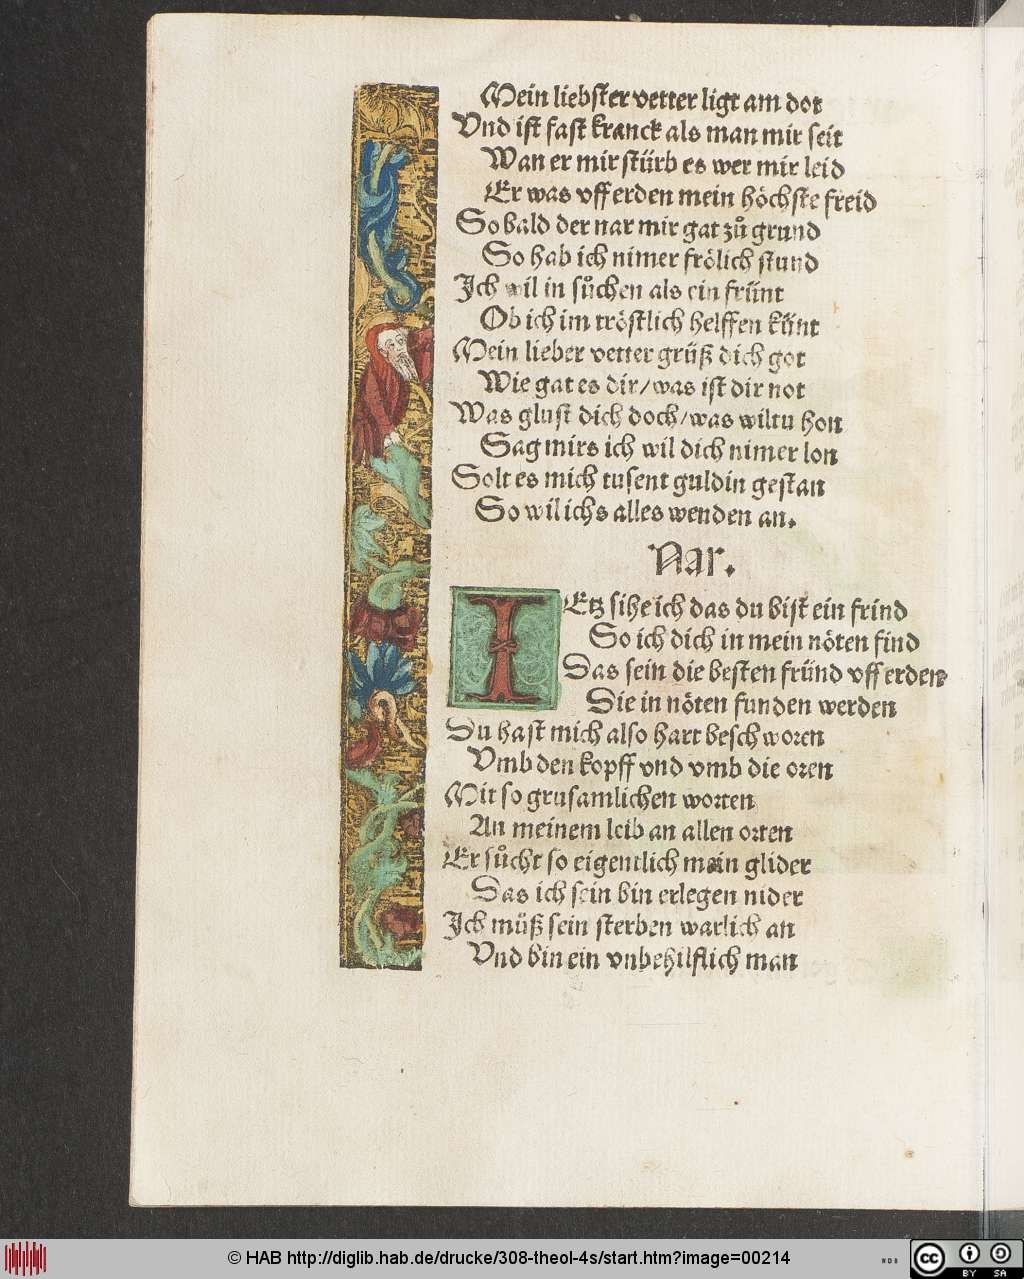 Mein liebster vetter ligt am dot
Vnd ist fast kranck als man mir seit
Wan er mir stürb es wer mir leid
Er was vff erden mein höchste freid
So bald der nar mir gat zů grund
So hab ich nimer frölich stund
Ich wil in sůchen als ein frünt
Ob ich im tröstlich helffen künt
Mein lieber vetter grüß dich got
Wie gat es dir/was ist dir not
Was glust dich doch/was wiltu hon
Sag mirs ich wil dich nimer lon
Solt es mich tusent guldin gestan
So wil ichs alles wenden an.
Nar.
IEtz sihe ich das du bist ein frind
So ich dich in mein nöten find
Das sein die besten fründ vff erden
Die in nöten funden werden
Du hast mich also hart beschworen
Vmb den kopff vnd vmb die oren
Mit so grusamlichen worten
An meinem leib an allen orten
Er sůcht so eigentlich mein glider
Das ich sein bin erlegen nider
Ich müß sein sterben warlich an
Vnd bin ein vnbehilflich man
© HAB http://diglib.hab.de/drucke/308-theol-4s/start.htm?image=00214
WDB
cc
BY SA